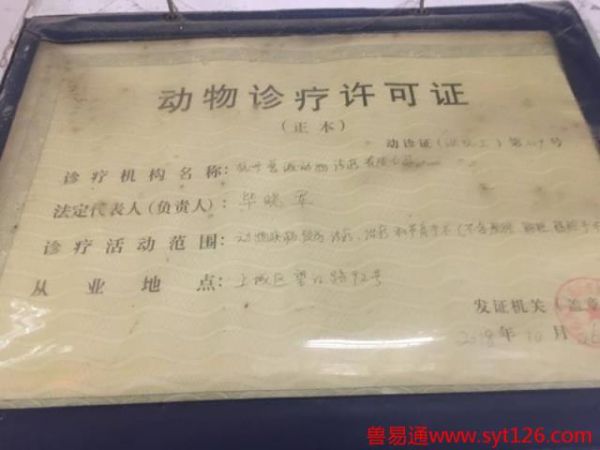 动物诊疗许可证
(正本)
动诊证( )第 号
诊疗机构名称: 杭州 动物诊所有限公司
法定代表人(负责人): 毕晓军
诊疗活动范围: 动物疾病预防、诊疗、治疗和节育手术(不含颅腔、胸腔、腹腔手术
从业地点: 上城区望江路92号
发证机关(盖章
2018年10月26
善易通www.syt126.com